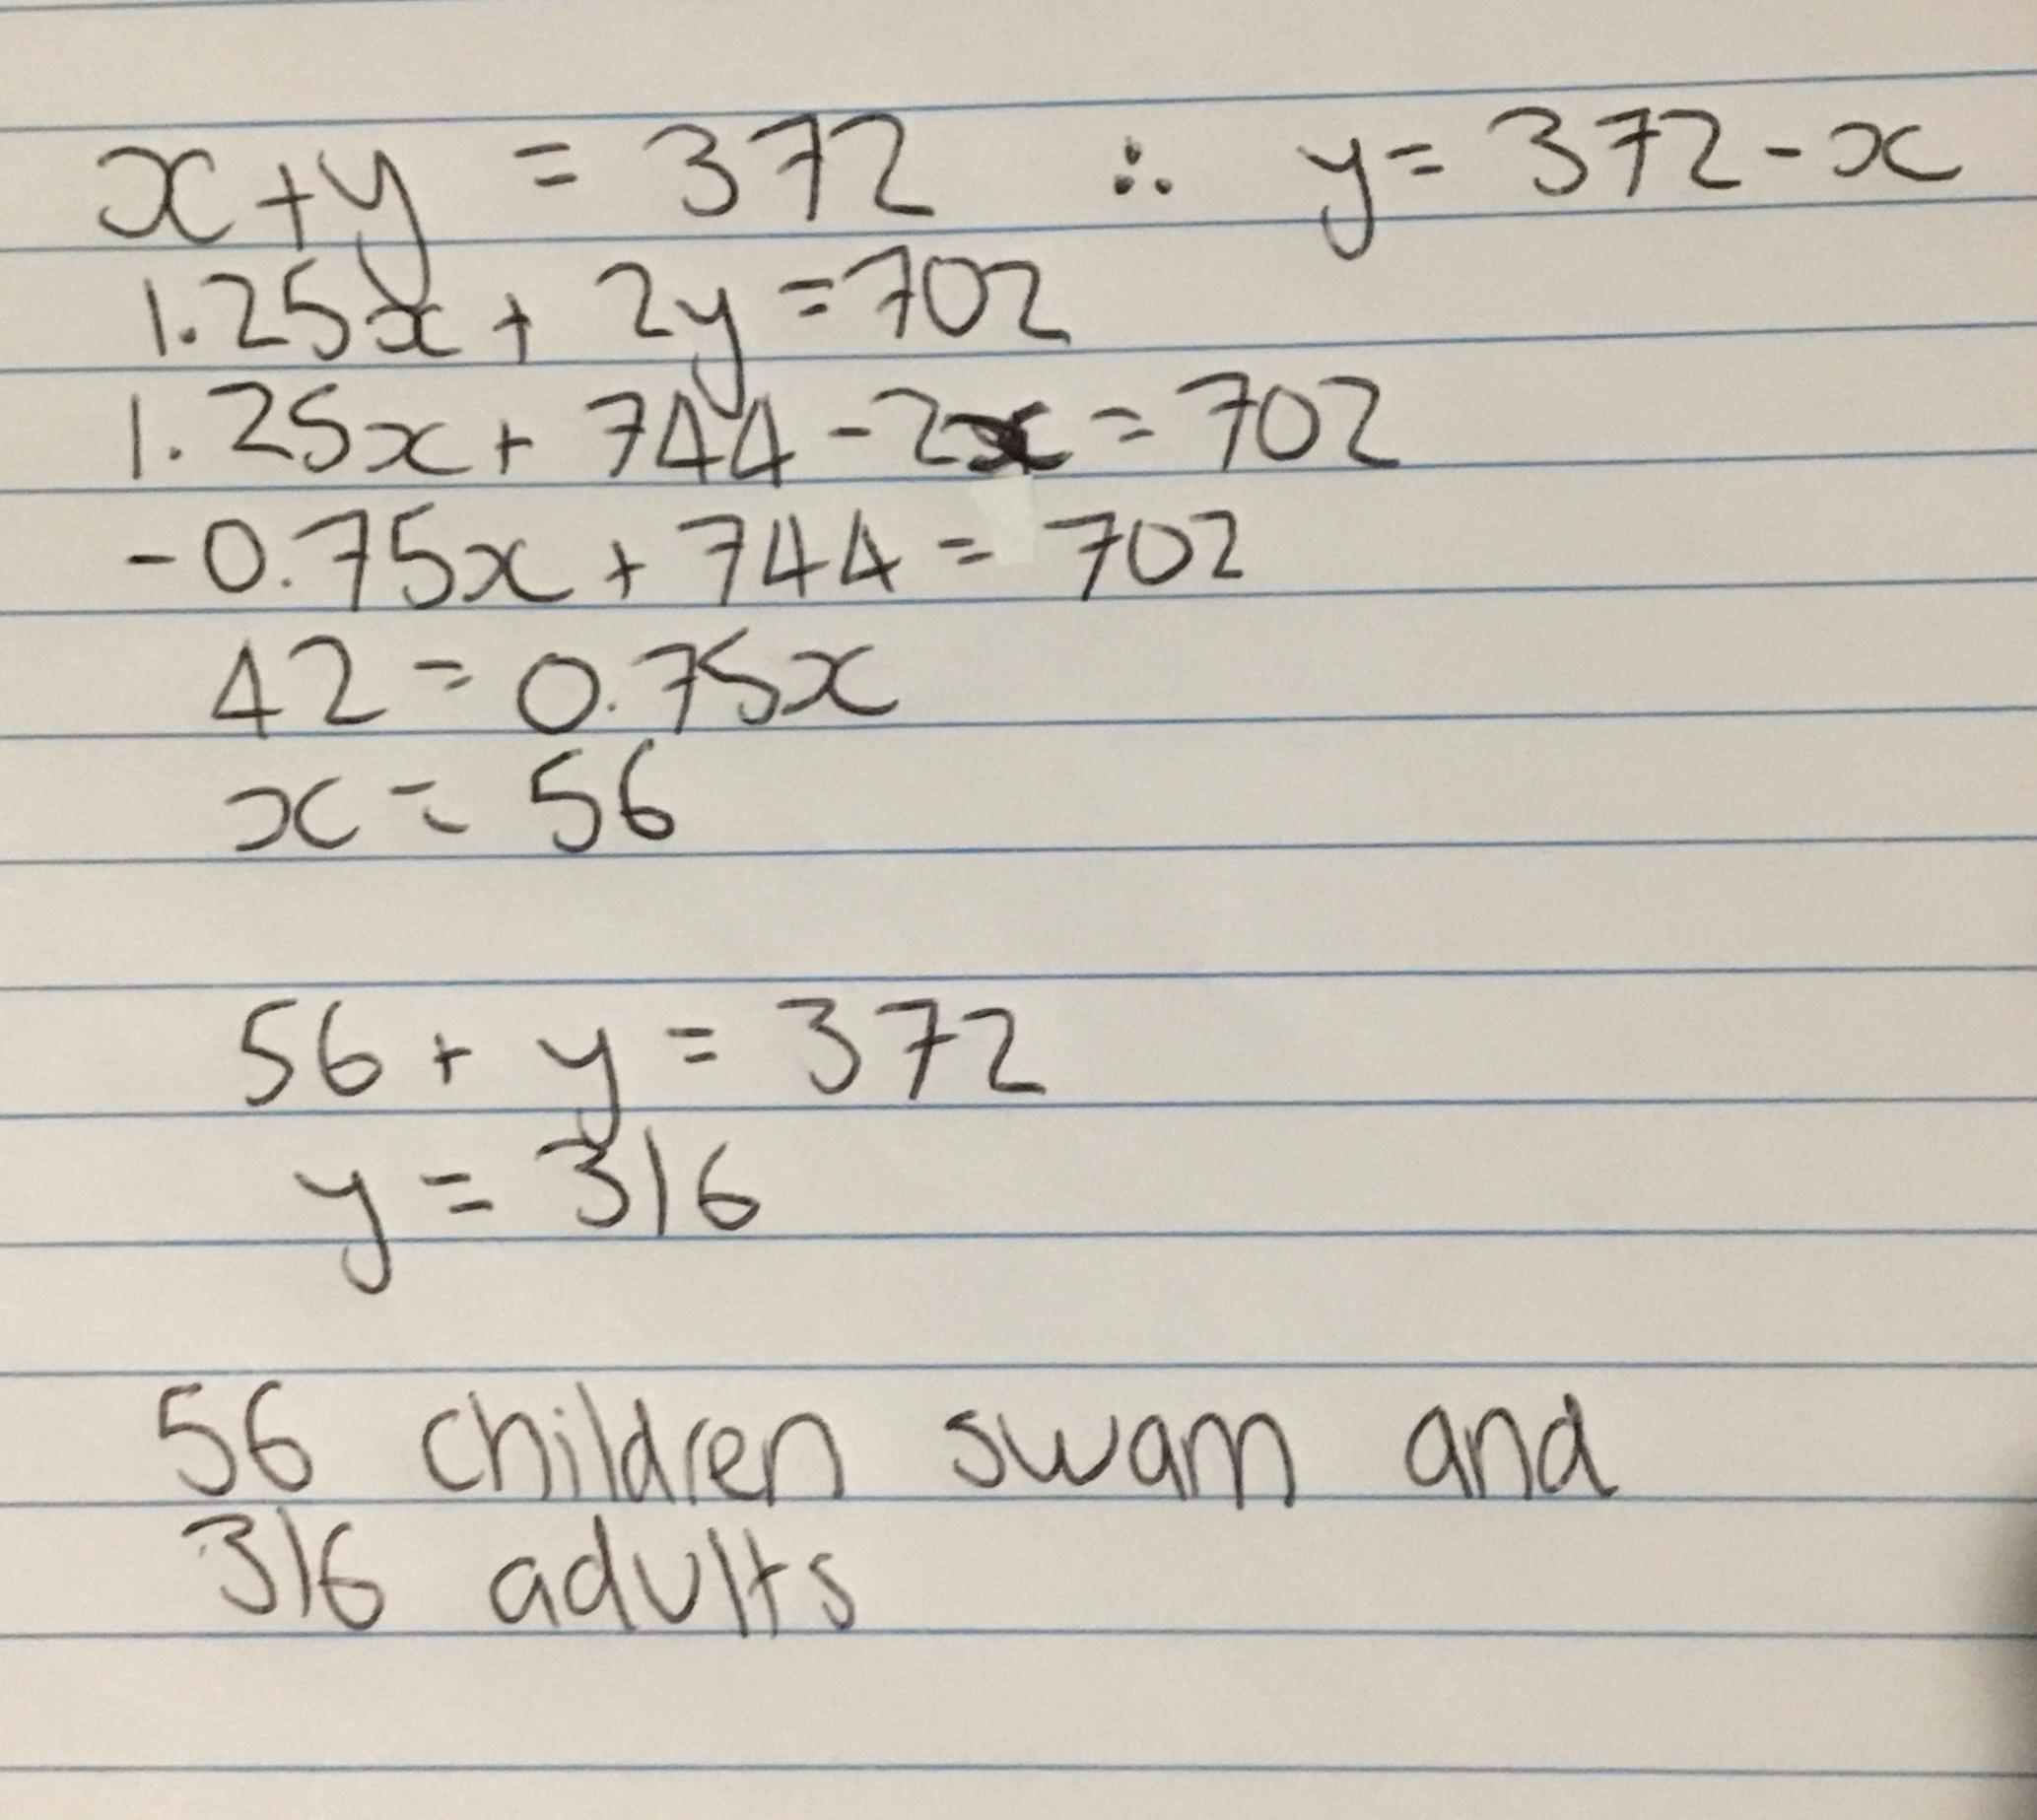 x+y = 372 ∴ y= 372-x
1.25x + 2y =702
1.25x + 744 -2x = 702
-0.75x + 744 = 702
42 = 0.75x
x = 56
56 + y = 372
y = 316
56 children swam and
316 adults